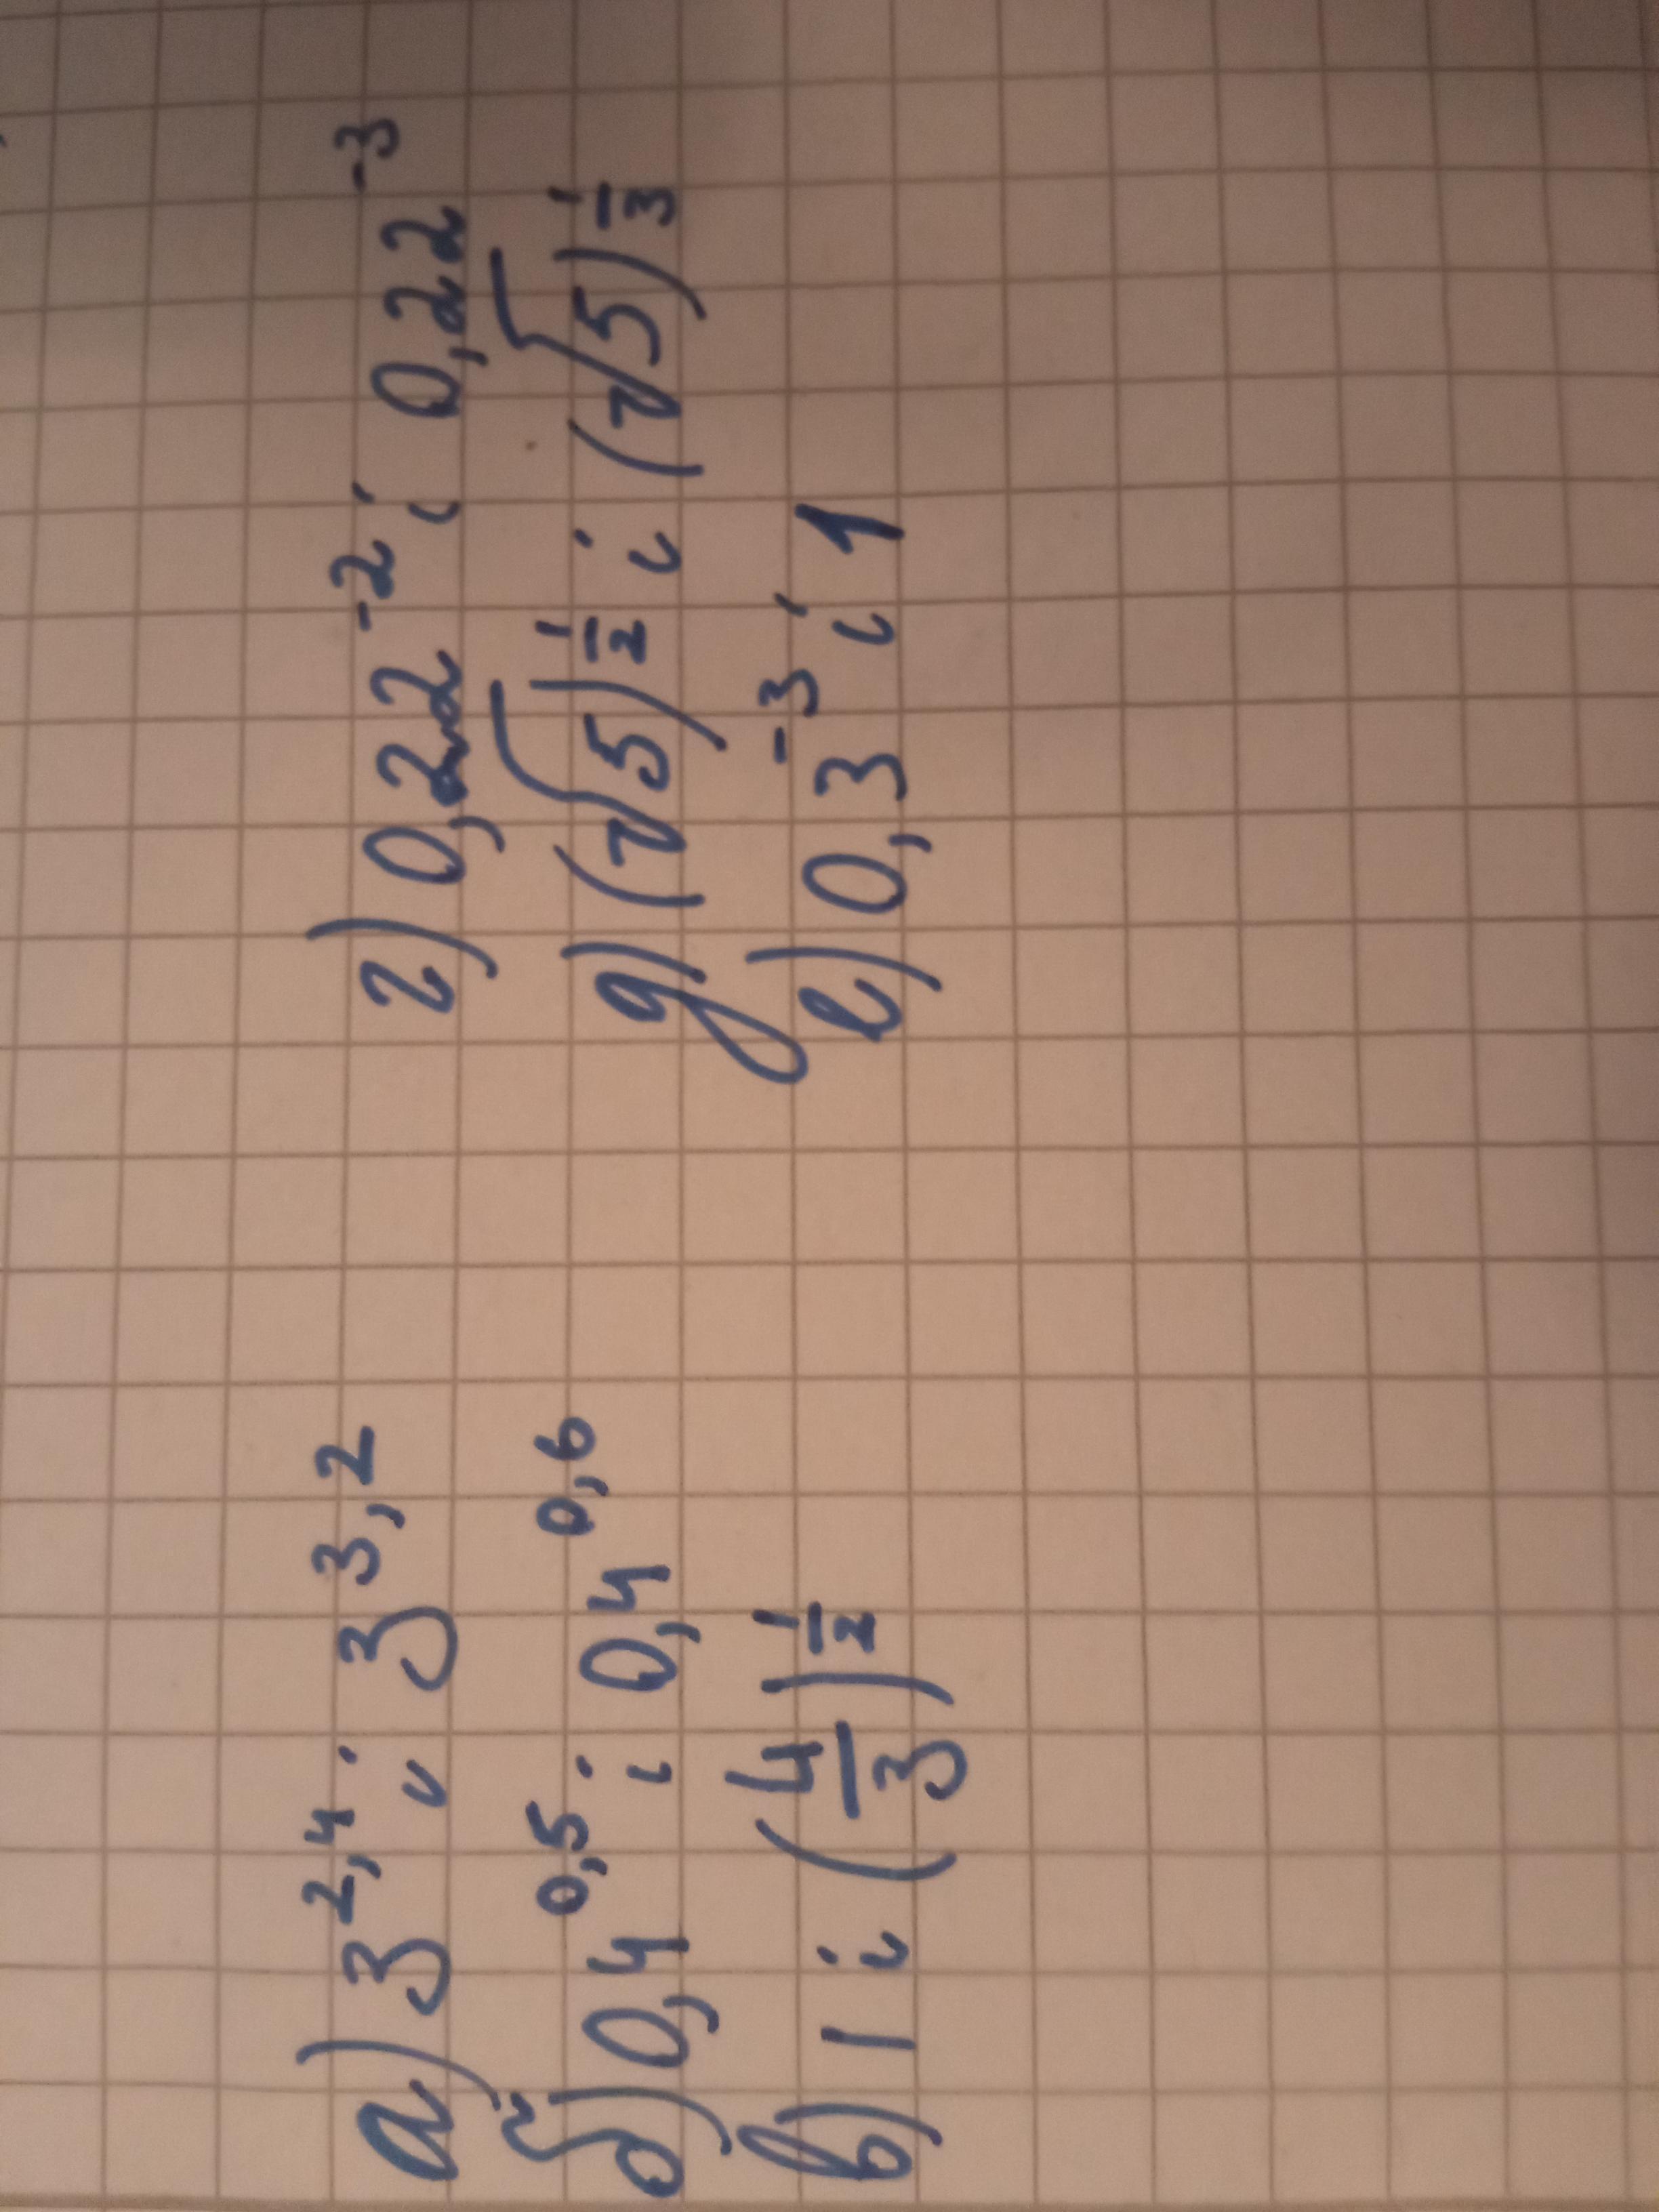 а) 3^2,4 і 3^3,2
б) 0,4^0,5 і 0,4^0,6
в) 1 і (4/3)^1/2
г) 0,22^-2 і 0,22^-3
д) (√5)^1/2 і (√5)^1/3
е) 0,3^-3 і 1